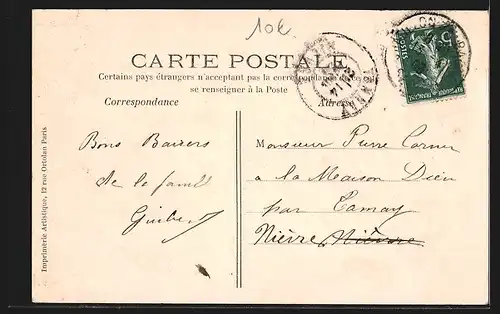 10€
CARTE POSTALE
Certains pays étrangers n'acceptant pas la correspondance
se renseigner à la Poste
Correspondance
Adresse
Bons Baisers
de la famill
Guibert
Monsieur Pierre
a la Maison Dieu
par Tannay
Nièvre Nièvre
Imprimerie Artistique, 12 rue Ortolan Paris